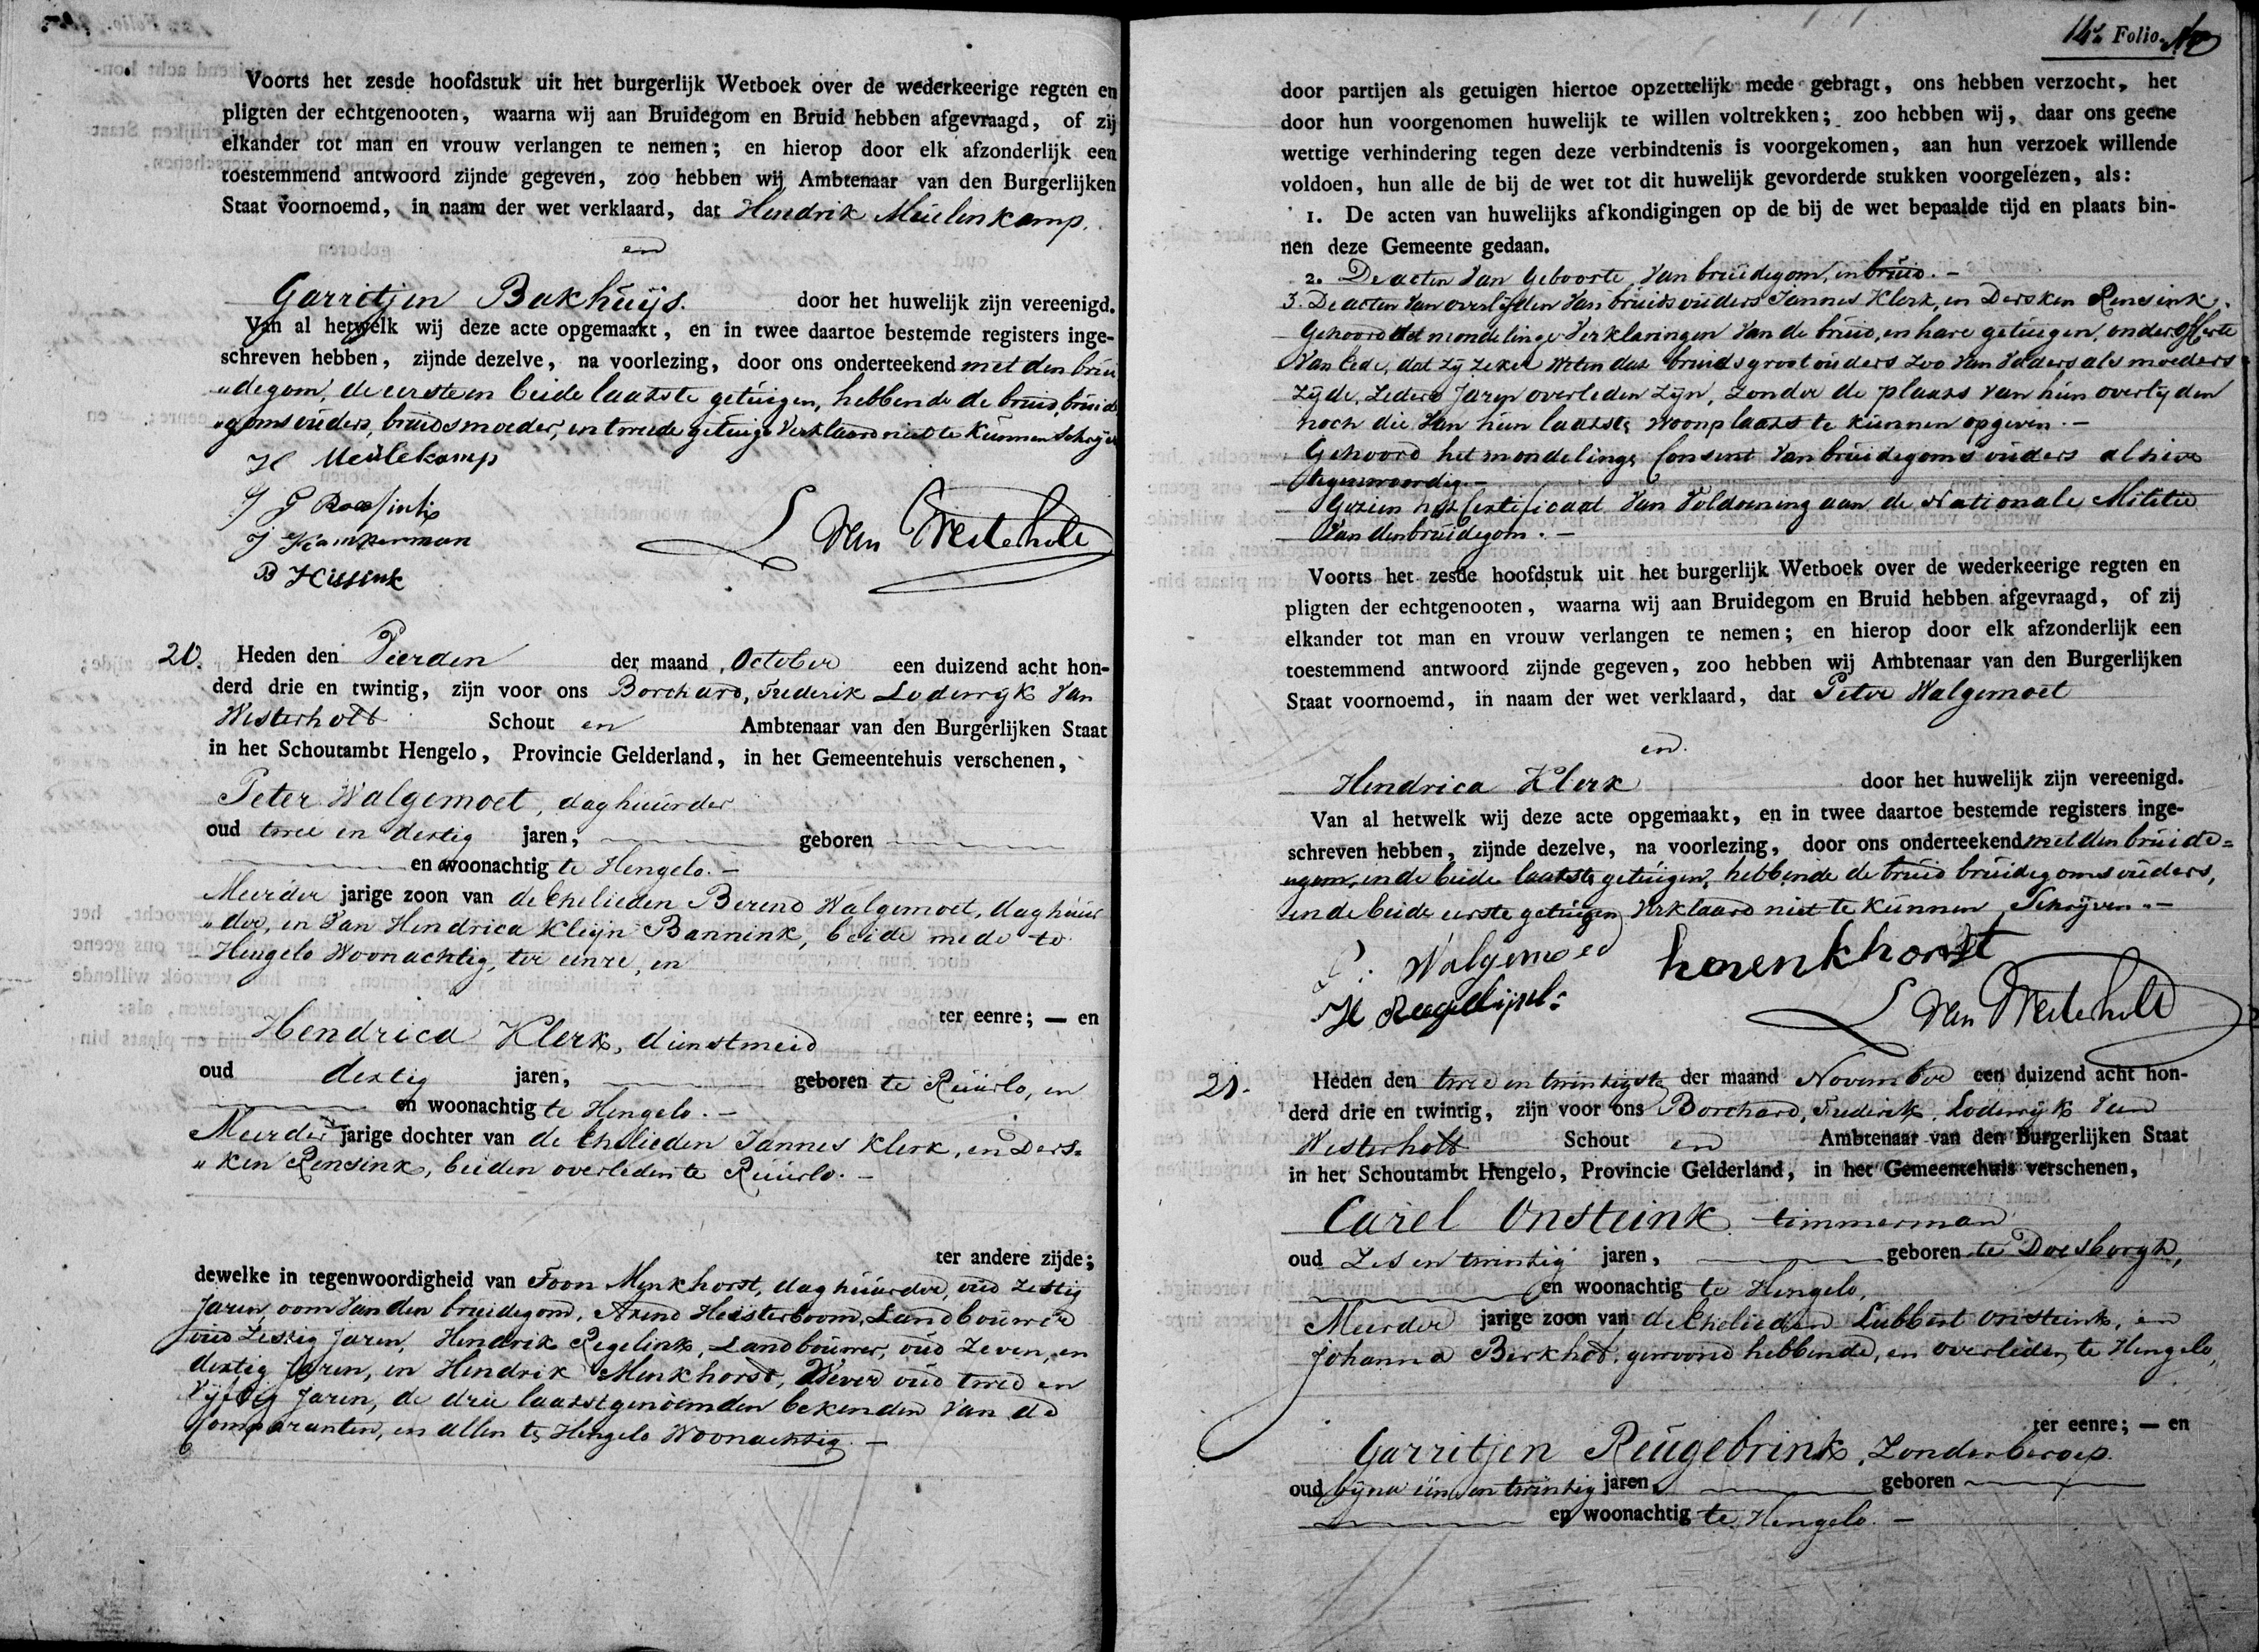 Voorts het zesde hoofdstuk uit het burgerlijk Wetboek over de wederkeerige regten en
pligten der echtgenooten, waarna wij aan Bruidegom en Bruid hebben afgevraagd, of zij
elkander tot man en vrouw verlangen te nemen; en hierop door elk afzonderlijk een
toestemmend antwoord zijnde gegeven, zoo hebben wij Ambtenaar van den Burgerlijken
Staat voornoemd, in naam der wet verklaard, dat Hendrik Meulenkamp.
en
Garritjen Bakhuijs. door het huwelijk zijn vereenigd.
Van al hetwelk wij deze acte opgemaakt, en in twee daartoe bestemde registers inge-
schreven hebben, zijnde dezelve, na voorlezing, door ons onderteekend met den brui
"degom, de eerste en beide laatste getuigen, hebbende de bruid, bruide
"goms ouders, bruidsmoeder, en tweede getuige verklaard niet te kunnen schrijven
H Meulekamp
J Kamperman
B Hissink
L Van Westerholt
20. Heden den Vierden der maand October een duizend acht hon-
derd drie en twintig, zijn voor ons Borchard, Frederik Lodewyk Van
Westerholt Schout en Ambtenaar van den Burgerlijken Staat
in het Schoutambt Hengelo, Provincie Gelderland, in het Gemeentehuis verschenen,
Peter Walgemoet, daghuurder
oud twee en dertig jaren, geboren
en woonachtig te Hengelo. -
Meerder jarige zoon van de Ehelieden Berend Walgemoet, daghuur
"der, en Van Hendrica Kleijn Bannink, beide mede te
Hengelo Woonachtig, ter eenre, en
ter eenre; — en
Hendrica Klerk, dienstmeid
oud dertig jaren, geboren te Ruurlo, en
en woonachtig te Hengelo. -
Meerder jarige dochter van de Ehelieden Jannes Klerk, en Ders=
"ken Rensink, beiden overleden te Ruurlo. -
ter andere zijde;
dewelke in tegenwoordigheid van Toon Menkhorst, daghuurder, oud zestig
Jaren, oom van den bruidegom, Arend Heisterboom, Landbouwer
oud Zestig Jaren, Hendrik Regelink, Landbouwer, oud Zeven en
dertig Jaren, en Hendrik Menkhorst, Wever oud twee en
Vijftig Jaren, de drie laatstgenoemden bekenden van de
Comparanten, en allen te Hengelo Woonachtig. -
14e Folio.
door partijen als getuigen hiertoe opzettelijk mede gebragt, ons hebben verzocht, het
door hun voorgenomen huwelijk te willen voltrekken; zoo hebben wij, daar ons geene
wettige verhindering tegen deze verbindtenis is voorgekomen, aan hun verzoek willende
voldoen, hun alle de bij de wet tot dit huwelijk gevorderde stukken voorgelezen, als:
1. De acten van huwelijks afkondigingen op de bij de wet bepaalde tijd en plaats bin-
nen deze Gemeente gedaan.
2. De acten Van Geboorte Van bruidegom, en bruid. -
3. De acten Van overlijden Van bruids ouders Jannes Klerk, en Dersken Rensink.
Gehoord de mondelinge Verklaringen Van de bruid, en hare getuigen, onder offerte
Van Eede, dat zij zeker weten dat bruids grootouders zoo van Vaders als moeders
zijde, zeders Jaren overleden zijn, zonder de plaats van hun overlyden
noch die Van hun laatste woonplaats te kunnen opgeven. -
Gehoord het mondelinge Consent Van bruidegoms ouders alhier
tegenwoordig. -
Gezien het Certificaat Van Voldoening aan de Nationale Militie
Van den bruidegom. -
Voorts het zesde hoofdstuk uit het burgerlijk Wetboek over de wederkeerige regten en
pligten der echtgenooten, waarna wij aan Bruidegom en Bruid hebben afgevraagd, of zij
elkander tot man en vrouw verlangen te nemen; en hierop door elk afzonderlijk een
toestemmend antwoord zijnde gegeven, zoo hebben wij Ambtenaar van den Burgerlijken
Staat voornoemd, in naam der wet verklaard, dat Peter Walgemoet
en
Hendrica Klerk door het huwelijk zijn vereenigd.
Van al hetwelk wij deze acte opgemaakt, en in twee daartoe bestemde registers inge-
schreven hebben, zijnde dezelve, na voorlezing, door ons onderteekend met den bruide=
"gom, en de beide laatste getuigen, hebbende de bruid bruidegoms ouders,
en de beide eerste getuigen Verklaard niet te kunnen Schrijven. -
P. Walgemoed
H Regelijnk
L Van Westerholt
21. Heden den twee en twintigste der maand November een duizend acht hon-
derd drie en twintig, zijn voor ons Borchard, Frederik Lodewyk Van
Westerholt Schout en Ambtenaar van den Burgerlijken Staat
in het Schoutambt Hengelo, Provincie Gelderland, in het Gemeentehuis verschenen,
Carel Onsteink timmerman
oud Zes en twintig jaren, geboren te Doesborgh,
en woonachtig te Hengelo,
Meerder jarige zoon van de Ehelieden Lubbert Onsteink, en
Johanna Berkhof, gewoond hebbende, en overleden te Hengelo,
ter eenre; — en
Garritjen Reugebrink, Zonder beroep.
oud byna een en twintig jaren, geboren
en woonachtig te Hengelo. -